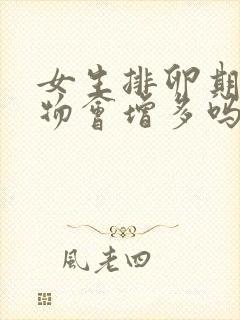 女生排卵期
物會增多嗎
風老四